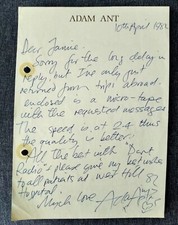 ADAM ANT
10th April 1982
Dear Jamie,
Sorry for the long delay in
reply, but I've only just
returned from trips abroad.
enclosed is a micro-tape
with the requested messages
The speed is at 2.4 thus
the quality is better.
All the best with "Dent
Radio" & please give my best wishes
to all patients at West Hill
Hospital.
Much love
82